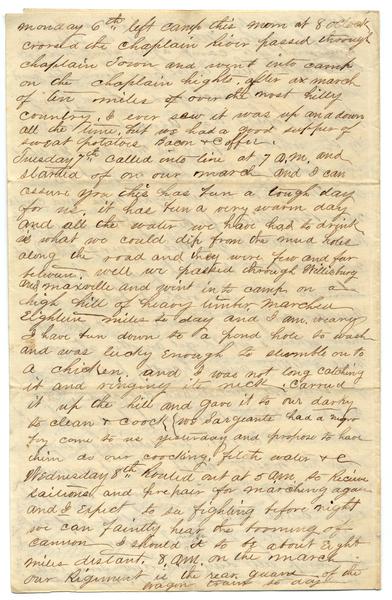 Monday 6th left camp this morn at 8 oclock
crossed the chaplain River passed through
chaplain Town and went into camp
on the chaplain hights. after a march
of ten miles of over the most hilly
country. I ever saw it was up and down
all the time, but we had a good supper of
sweat potatoes Bacon & Coffee.
Tuesday 7th called into line at 7 A.M. and
started of on our march and I can
assure you this has bun a tough day
for us, it has bun a very warm day
and all the water we have had to drink
is what we could dip from the mud holes
along the road and they were few and far
between. well we passed through Willisburg
and maxville and went into camp on a
high hill of heavy timber marched
Eighteen miles to day and I am weary
I have bun down to a pond hole to wash
and was lucky enough to stumble on to
a chicken, and I was not long catching
it and wringing its neck. Carried
it up the hill and gave it to our darky
to clean & coock we Sargeants had a negro
boy come to us yesterday and propose to have
him do our coocking, fetch water & c
Wednesday 8th Routed out at 5 A.M. to Recieve
rations and prepair for marching again
and I Expect to see fighting before night
we can faintly hear the booming of
cannon I should it to be about Eight
miles distant. 8, A.M. on the march
our Regiment is the rear guard of the
wagon train to day